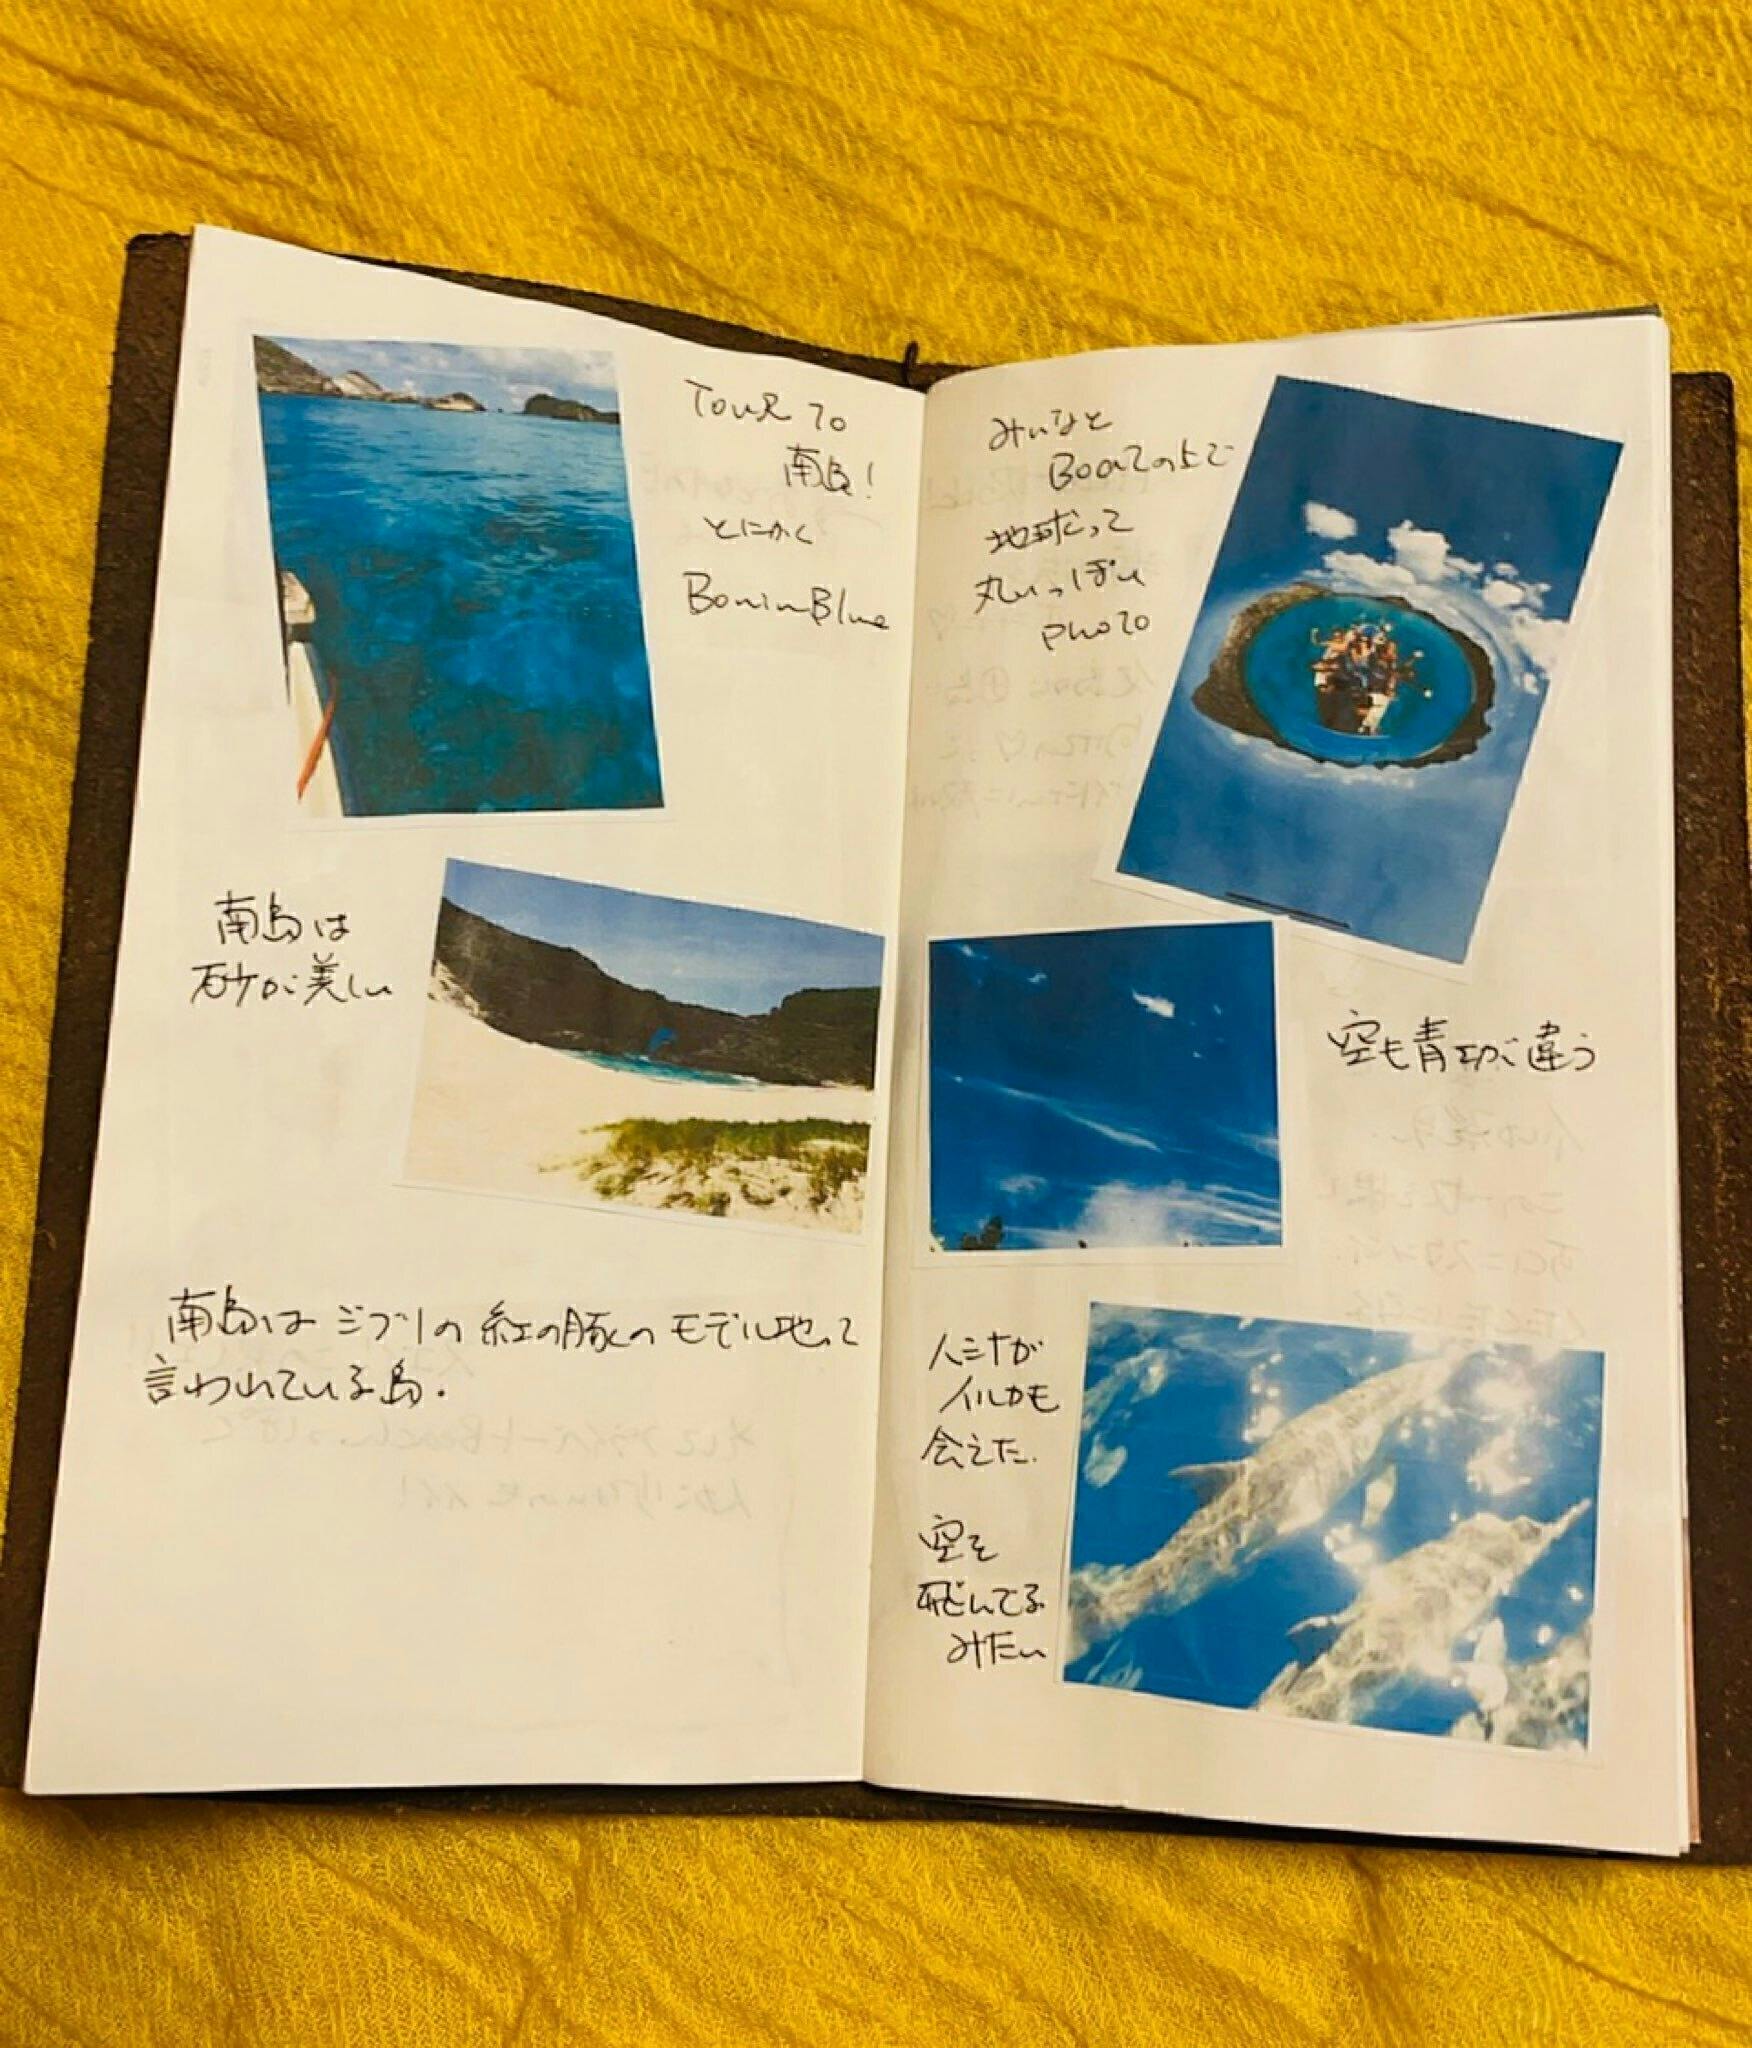 TOUR TO
南島!
とにかく
BoninBlue
南島は
砂が美しい
南島は ジブリの 紅の豚の モデル地って
言われている島.
みんなと
Boatの上で
地球って
丸いっぽい
PHOTO
空も青さが違う
イルカも
会えた.
空を
飛んでる
みたい